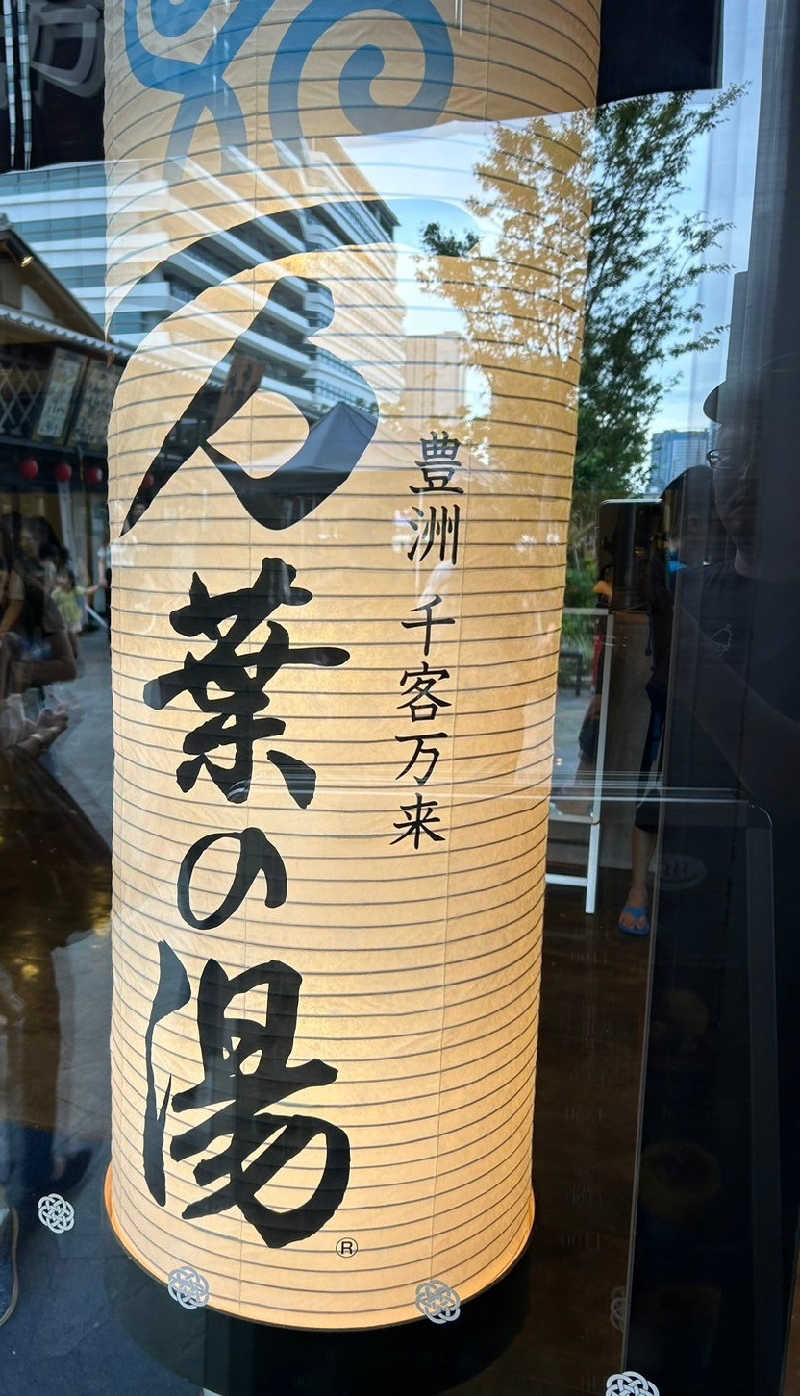 豊洲 千客万来
万葉の湯
®